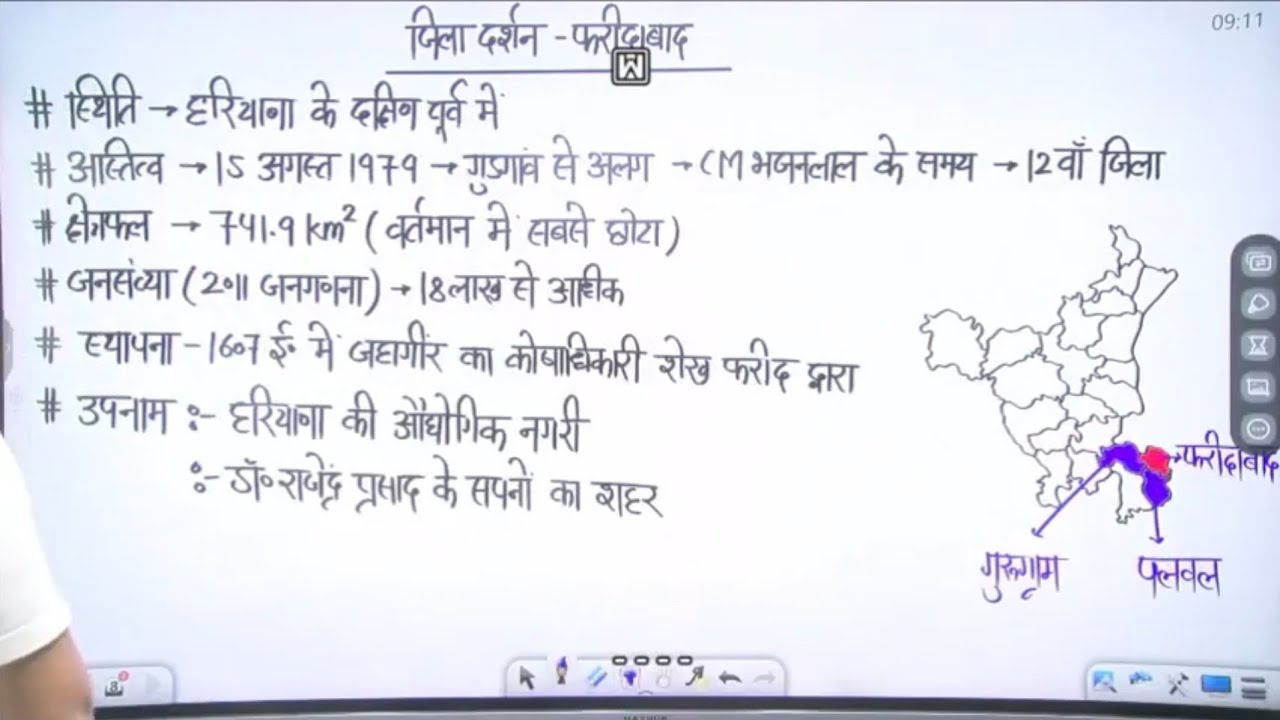 09:11
जिला दर्शन - फरीदाबाद
# स्थिति → हरियाणा के दक्षिण पूर्व में
# अस्तित्व → 15 अगस्त 1979 → गुड़गांव से अलग → CM भजनलाल के समय → 12वाँ जिला
# क्षेत्रफल → 741.9 km² (वर्तमान में सबसे छोटा)
# जनसंख्या (2011 जनगणना) → 18 लाख से अधिक
# स्थापना - 1607 ई० में जहागीर का कोषाधिकारी शेख फरीद द्वारा
# उपनाम :- हरियाणा की औद्योगिक नगरी
:- डॉ० राजेंद्र प्रसाद के सपनों का शहर
→ फरीदाबाद
गुरुग्राम
पलवल